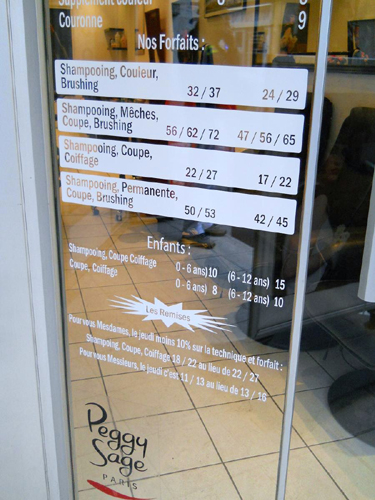 Supplément couleur 8
Couronne 9
Nos Forfaits :
Shampooing, Couleur,
Brushing 32 / 37 24 / 29
Shampooing, Mêches,
Coupe, Brushing 56 / 62 / 72 47 / 56 / 65
Shampooing, Coupe,
Coiffage 22 / 27 17 / 22
Shampooing, Permanente,
Coupe, Brushing 50 / 53 42 / 45
Enfants :
Shampooing, Coupe Coiffage 0 - 6 ans) 10 (6 - 12 ans) 15
Coupe, Coiffage 0 - 6 ans) 8 (6 - 12 ans) 10
Les Remises
Pour vous Mesdames, le jeudi moins 10% sur la technique et forfait :
Shampoing, Coupe, Coiffage 18 / 22 au lieu de 22 / 27
Pour vous Messieurs, le jeudi c'est 11 / 13 au lieu de 13 / 16
Peggy
Sage
PARIS